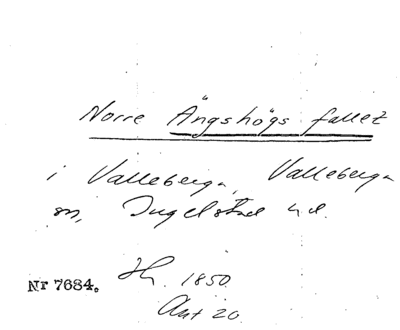 Norre Ängshögs fallet
i Valleberga, Valleberga
sn, Ingelstad hd.
Nr 7684. 1850
Akt 20